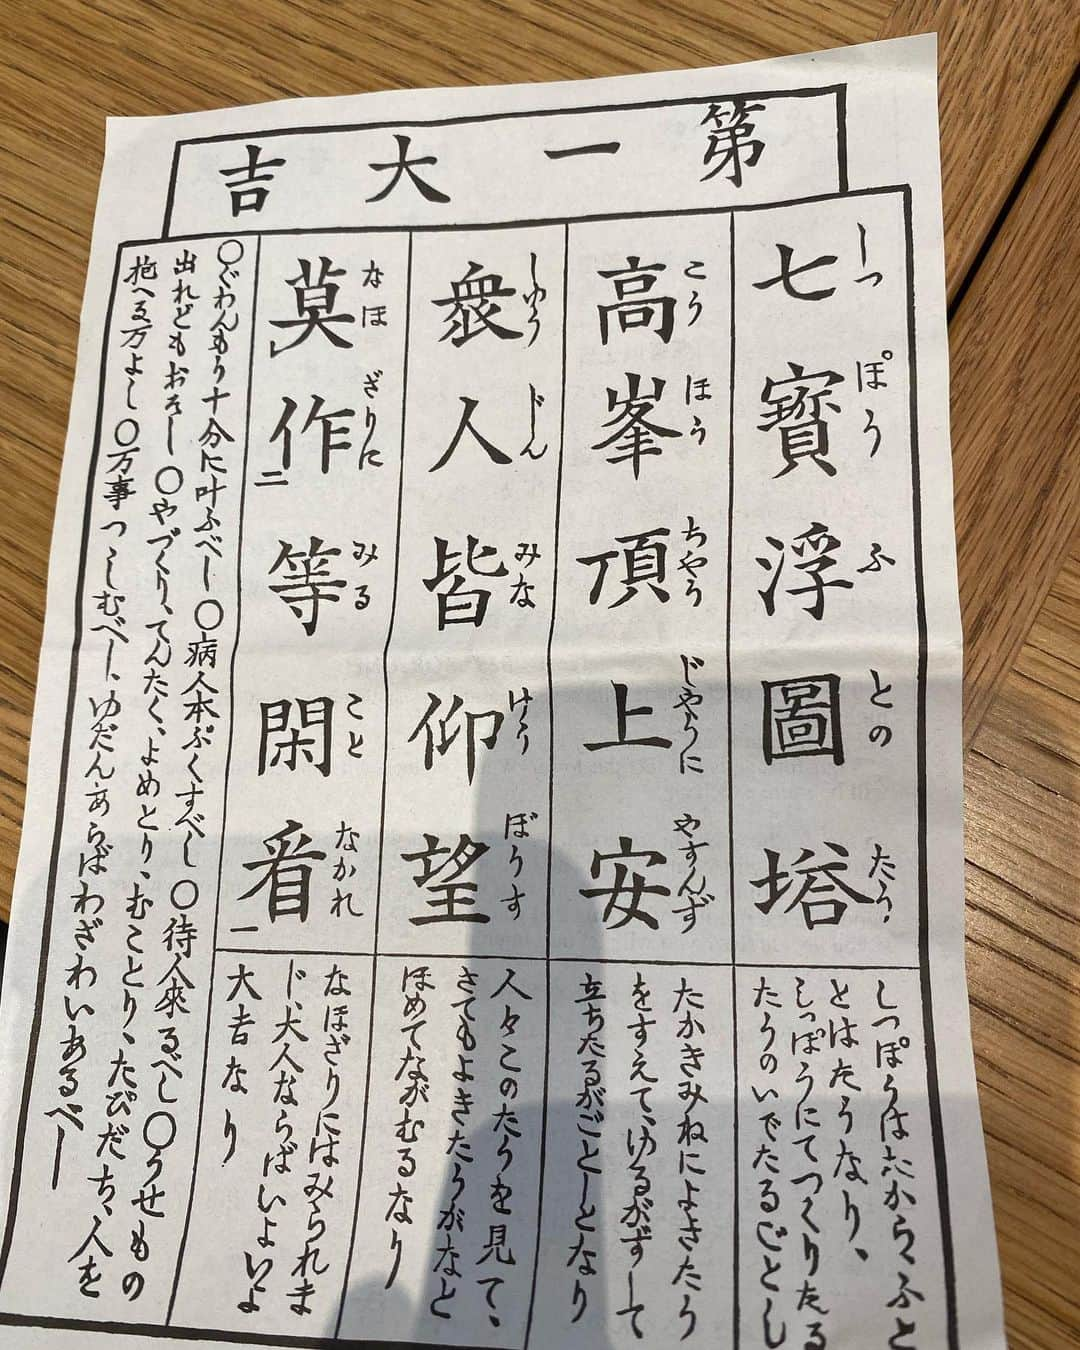 第一大吉
七寳浮圖塔
しつぽうふとのたう
しつぽうはたから、ふと
とはたうなり、
しつぽうにてつくりたる
たうのいでたるごとし
高峯頂上安
こうほうちやうじやうにやすんず
たかきみねによきたう
をすえて、ゆるがずして
立ちたるがごとしとなり
衆人皆仰望
しゆうじんみなけうぼうす
人々このたうを見て、
さてもよきたうがなと
ほめてながむるなり
莫レ作二等閑看一
なほざりにみることなかれ
なほざりにはみられま
じ、大人ならばいよいよ
大吉なり
〇ぐわんもう十分に叶ふべし〇病人本ぷくすべし〇待人來るべし〇うせもの
出れどもおそし〇やづくり、てんたく、よめとり、むことり、たびだち、人を
抱へる万よし〇万事つゝしむべし、ゆだんあらばわざわいあるべし